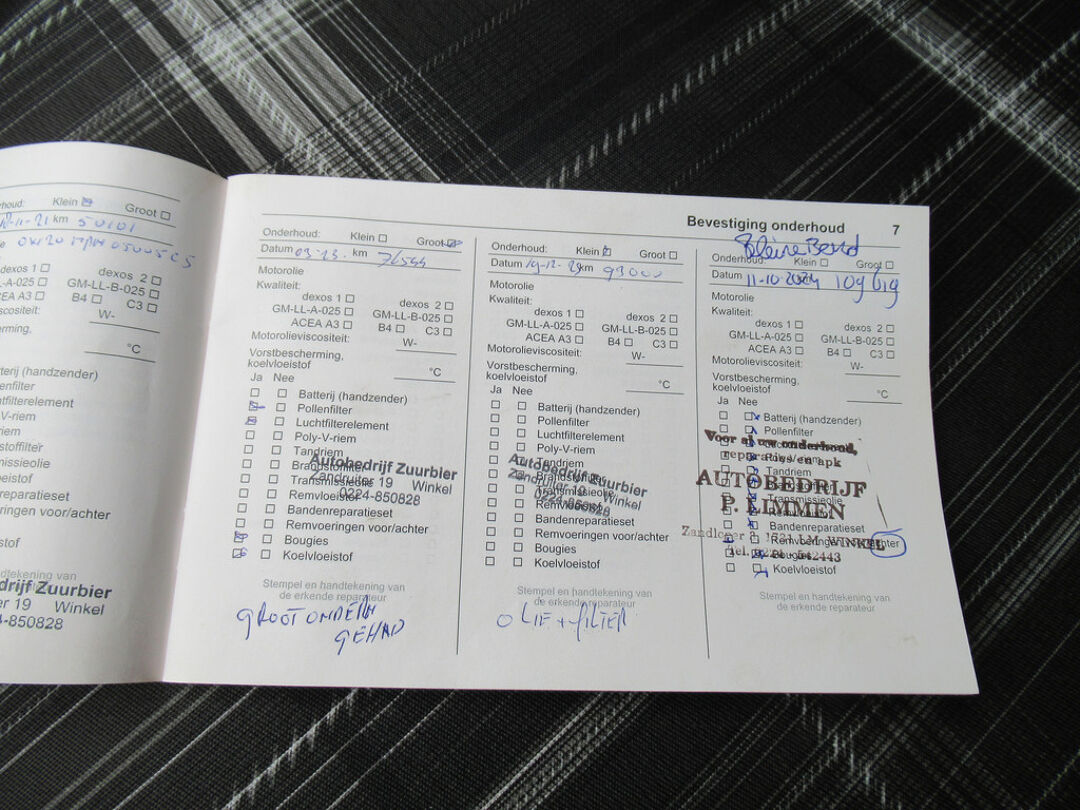 houd: Klein Groot
km 50101
0W20
dexos 1 dexos 2
L-A-025 GM-LL-B-025
EA A3 B4 C3
viscositeit: W-
rming,
°C
terij (handzender)
enfilter
htfilterelement
V-riem
stoffilter
missieolie
vloeistof
nreparatieset
oeringen voor/achter
s
stof
handtekening van
drijf Zuurbier
er 19 Winkel
4-850828
Bevestiging onderhoud 7
Onderhoud: Klein Groot
Datum 03-23. km
Motorolie
Kwaliteit:
dexos 1 dexos 2
GM-LL-A-025 GM-LL-B-025
ACEA A3 B4 C3
Motorolieviscositeit: W-
Vorstbescherming,
koelvloeistof °C
Ja Nee
Batterij (handzender)
Pollenfilter
Luchtfilterelement
Poly-V-riem
Tandriem
Brandstoffilter
Transmissieolie
Remvloeistof
Bandenreparatieset
Remvoeringen voor/achter
Bougies
Koelvloeistof
Autobedrijf Zuurbier
Zandruiter 19 Winkel
0224-850828
Stempel en handtekening van
de erkende reparateur
GROOT ONDERH
GEHAD
Onderhoud: Klein Groot
Datum 19-12-23 km 93000
Motorolie
Kwaliteit:
dexos 1 dexos 2
GM-LL-A-025 GM-LL-B-025
ACEA A3 B4 C3
Motorolieviscositeit: W-
Vorstbescherming,
koelvloeistof °C
Ja Nee
Batterij (handzender)
Pollenfilter
Luchtfilterelement
Poly-V-riem
Tandriem
Brandstoffilter
Transmissieolie
Remvloeistof
Bandenreparatieset
Remvoeringen voor/achter
Bougies
Koelvloeistof
Autobedrijf Zuurbier
Zandruiter 19 Winkel
0224-850828
Stempel en handtekening van
de erkende reparateur
OLIE + FILTER
Kleine Beurt
Onderhoud: Klein Groot
Datum 11-10-2024
Motorolie
Kwaliteit:
dexos 1 dexos 2
GM-LL-A-025 GM-LL-B-025
ACEA A3 B4 C3
Motorolieviscositeit: W-
Vorstbescherming,
koelvloeistof °C
Ja Nee
Batterij (handzender)
Pollenfilter
Poly-V-riem
Tandriem
Transmissieolie
Bandenreparatieset
Remvoeringen achter
Bougies
Koelvloeistof
Voor al uw onderhoud,
reparaties en apk
AUTOBEDRIJF
P. LIMMEN
WINKEL
542443
Stempel en handtekening van
de erkende reparateur